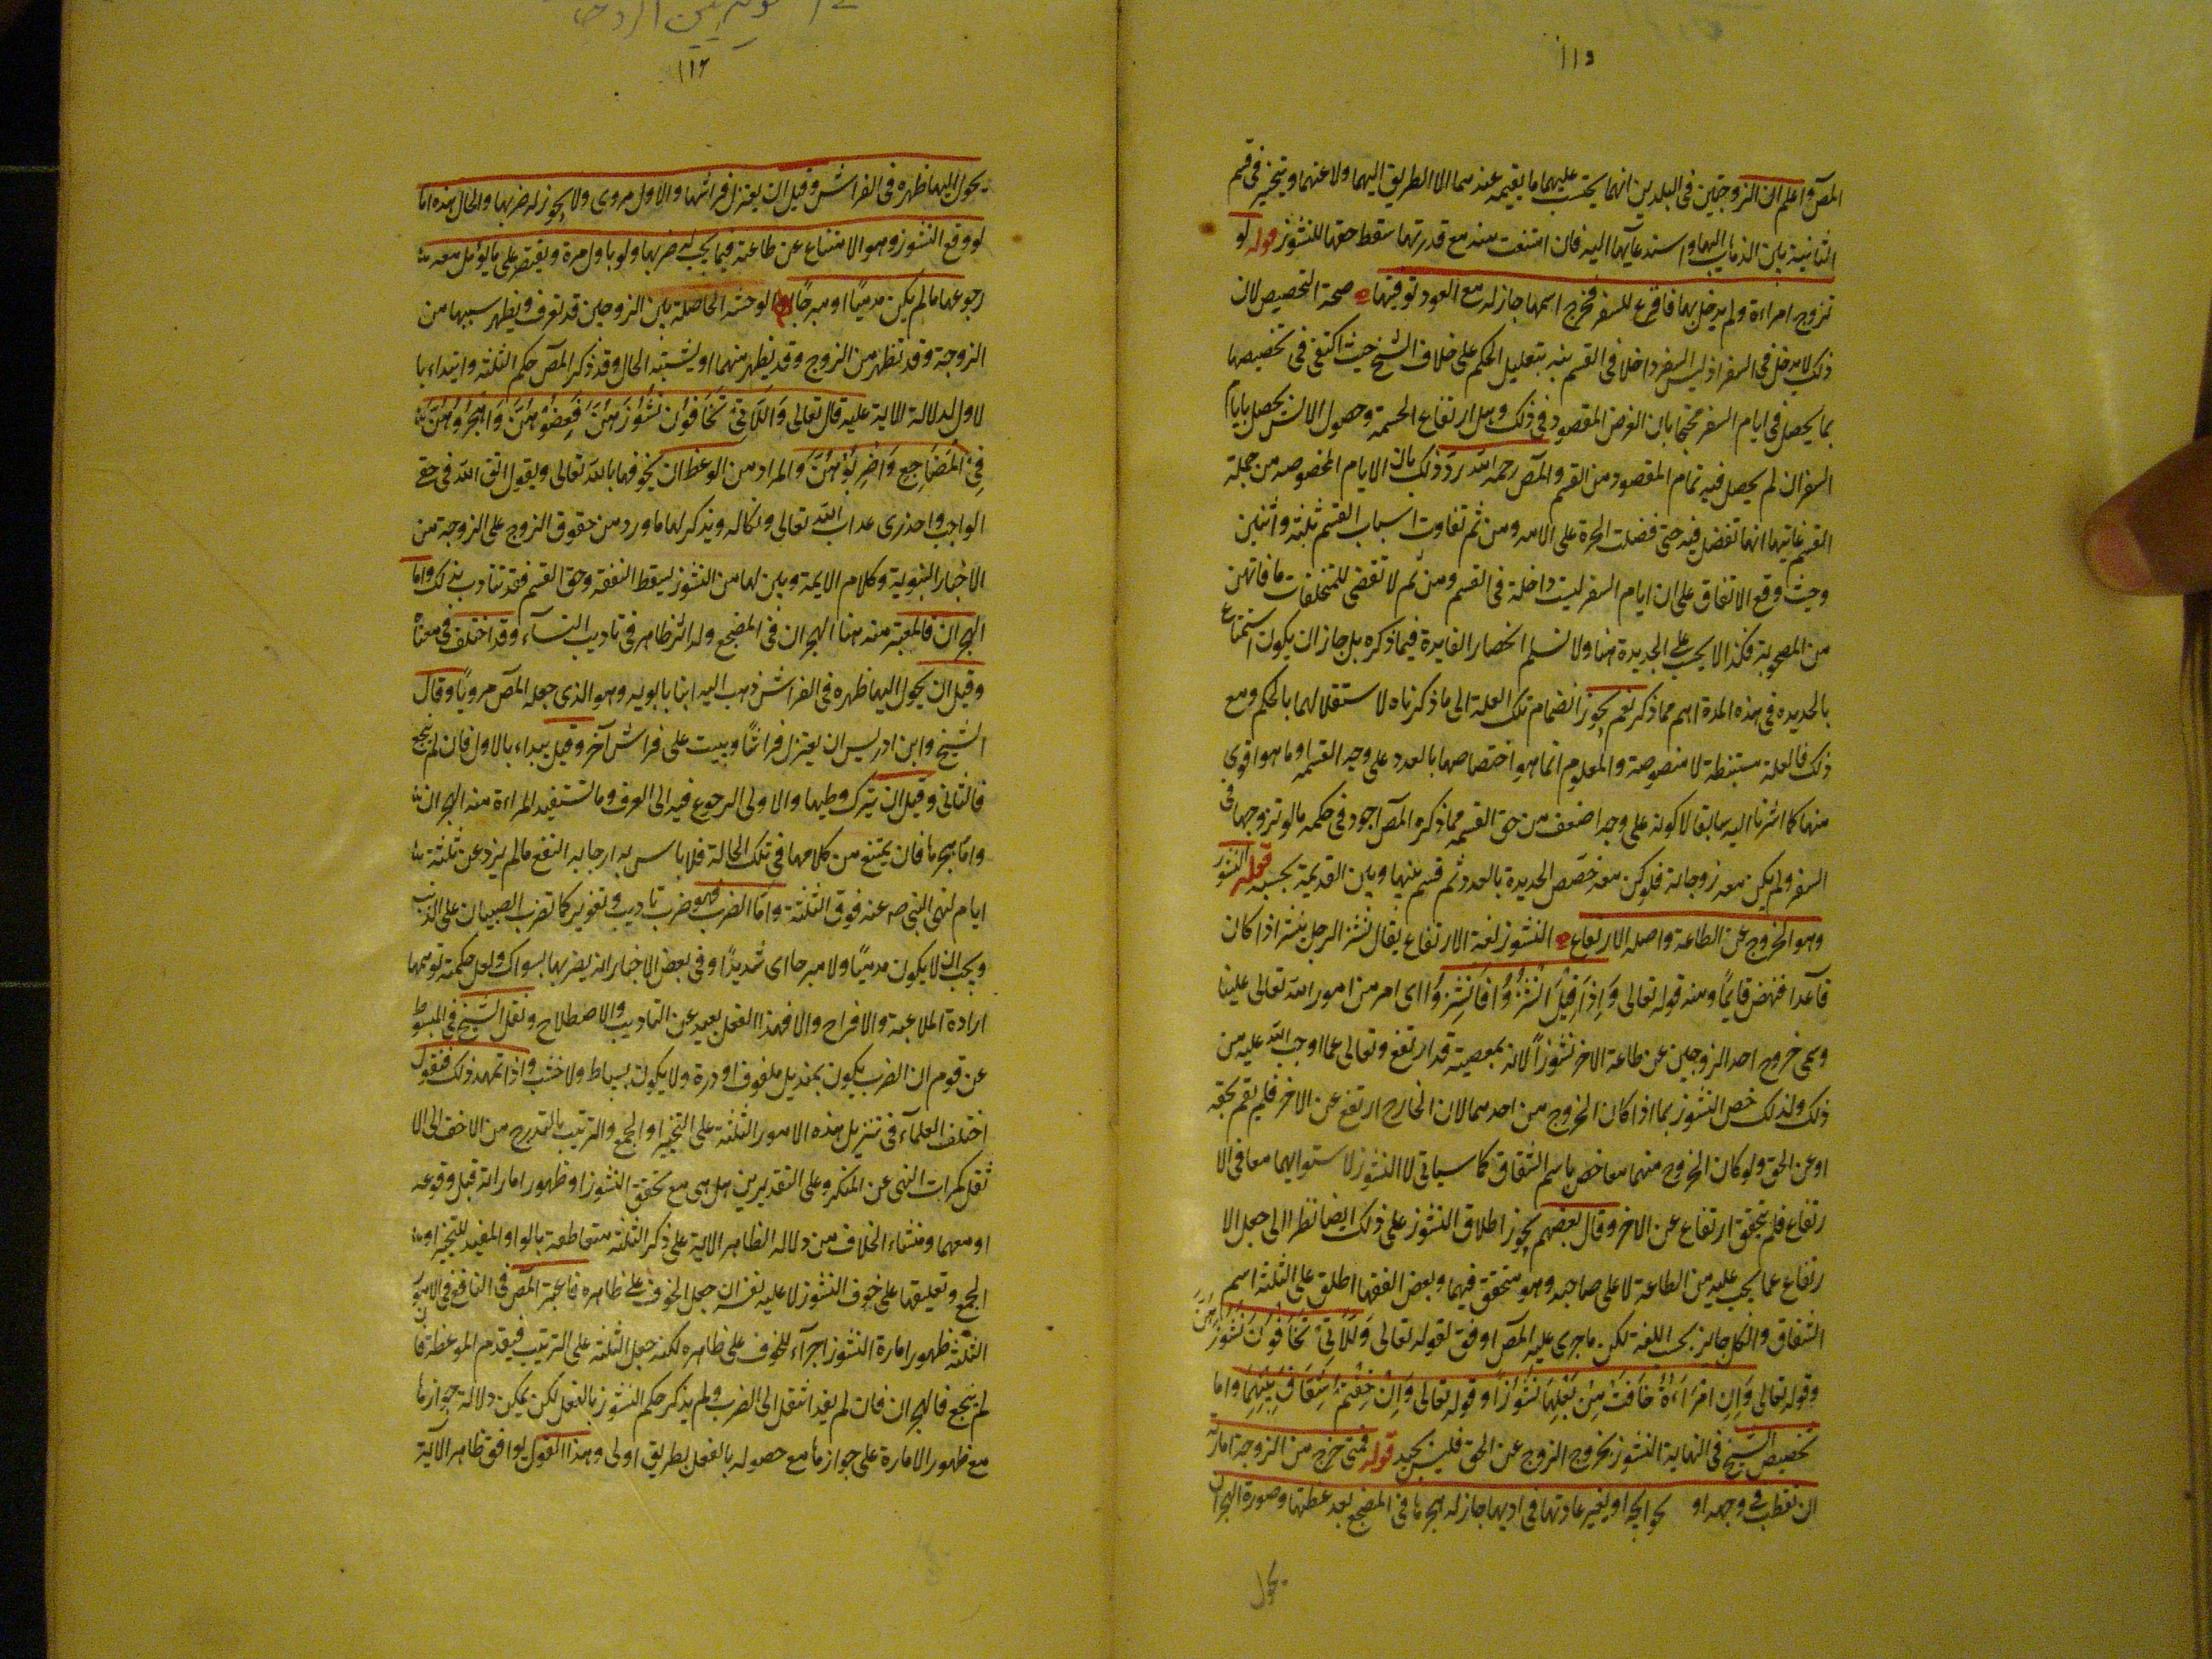 ١١٥
المص واعلم ان الزوجتين فى البلدين انما يحتسب عليهما ما يقيمه عندهما الا الطريق اليهما ولا عنهما ويتخير فى قسم
الثانية بين الذهاب اليها واستدعآئها اليه فان امتنعت منه مع قدرتها سقط حقها للنشوز قوله لو
تزوج امراءة ولم يدخل بها فاقرع للسفر فخرج اسمها جاز له مع العود توفيتها صحة التخصيص لان
ذلك لا يدخل فى السفر اذ ليس السفر داخلا فى القسم نبه بتعليل الحكم على خلاف الشيخ حيث اكتفى فى تخصيصها
بما يحصل فى ايام السفر محتجا بان الغرض المقصود فى ذلك وهل ارتفاع الحشمة وحصول الانس يحصل بايام
السفر ان لم يحصل فيه تمام المقصود من القسم والمص رحمه الله رد ذلك بان الايام المخصوصه من جملة
القسم غايتها انها تفضل فيه حتى فضلت الحرة على الامه ومن ثم تفاوت اسباب القسم ثلثة واثنين
وحيث وقع الاتفاق على ان ايام السفر ليست داخلة فى القسم ومن ثم لا تقضى للمتخلفات ما فاتهن
من المصحوبة فكذا لا يجب على الجديدة هنا ولا نسلم انحصار الفايدة فيما ذكره بل جاز ان يكون استمتاع
بالجديده فى هذه المدة اهم مما ذكر نعم يجوز انضمام تلك العلة الى ما ذكرناه لا استقلالها بالحكم ومع
ذلك فالعلة مستنبطة لا منصوصة والمعلوم انما هو اختصاصها بالعدد على وجه القسمه او ما هو اقوى
منها كما اشرنا اليه سابقا لا كونه على وجه اضعف من حق القسمه مما ذكره المص اجود فى حكمه ما لو تزوجها فى
السفر ولم يكن معه زوجاته فلو كن معه خصص الجديدة بالعدد ثم قسم بينها وبين القديمة بحسبه قوله النشوز
وهو الخروج عن الطاعة واصله الارتفاع النشوز لغة الارتفاع يقال نشز الرجل ينشز اذا كان
قآعدا فنهض قايمًا ومنه قوله تعالى وَاِذَا قِيلَ انْشُزُوا فَانْشُزُوا اى امر من امور الله تعالى علينا
وسمى خروج احد الزوجين عن طاعة الاخر نشوزاً لانه بمعصيته قد ارتفع وتعالى عما اوجب الله عليه من
ذلك ولذلك خص النشوز بما اذا كان الخروج من احدهما لان الخارج ارتفع عن الاخر فلم يقم بحقه
او عن الحق ولو كان الخروج منهما معا خص باسم الشقاق كما سياتى لا النشوز لاستوايهما معا فى الا
رتفاع فلم يتحقق ارتفاع عن الاخر وقال بعضهم يجوز اطلاق النشوز على ذلك ايضا نظرا الى جعل الا
رتفاع عما يجب عليه من الطاعة لا على صاحبه وهو متحقق فيهما وبعض الفقها اطلق على الثلثة اسم
الشقاق والكل جايز بحسب اللغة لكن ما جرى عليه المص اوفق لقوله تعالى وَاللَّاتِى تَخَافُونَ نُشُوزَهُنَّ
وقوله تعالى وَاِنِ امْرَاَءةٌ خَافَتْ مِنْ بَعْلِهَا نُشُوزًا وقوله تعالى وَاِنْ خِفْتُمْ شِقَاقَ بَيْنِهِمَا واما
تخصيص الشيخ فى النهاية النشوز بخروج الزوج عن الحق فليس بجيد قوله فمتى خرج من الزوجة امارته
ان تقطب فى وجهه او بحوايجه او يغير عادتها فى ادبها جاز له هجرها فى المضجع بعد عظتها وصورة الهجران
يحول
١١٦
يحول اليها ظهره فى الفراش وقيل ان يعتزل فراشها والاول مروى ولا يجوز له ضربها والحال هذه اما
لو وقع النشوز وهو الامتناع عن طاعته فيما يجب له ضربها ولو باول مرة ويقتصر على ما يؤمل معه
رجوعها ما لم يكن مدميًا او مبرحًا الوحشة الحاصلة بين الزوجين قد تعرف ويظهر سببها من
الزوجة وقد تظهر من الزوج وقد يظهر منهما او يشتبه الحال وقد ذكر المص حكم الثلثة وابتداء با
لاول لدلالة الاية عليه قال تعالى وَاللَّاتِى تَخَافُونَ نُشُوزَهُنَّ فَعِضُوهُنَّ وَاهْجُرُوهُنَّ
فِى الْمَضَاجِعِ وَاضْرِبُوْهُنَّ والمراد من الوعظ ان يخوفها بالله تعالى ويقول اتق الله فى حقى
الواجب واحذرى عذاب الله تعالى ونكاله ويذكر لها ما ورد من حقوق الزوج على الزوجة من
الاخبار النبوية وكلام الايمة ويبين لها من النشوز يسقط النفقة وحق القسم فقد تتادب بذلك واما
الهجران فالمعتبر منه هنا الهجران فى المضجع وله اثر ظاهر فى تاديب النسآء وقد اختلف فى معناه
وقيل ان يحول اليها ظهره فى الفراش ذهب اليه ابنا بابويه وهو الذى جعله المص مرويًا وقال
الشيخ وابن ادريس ان يعتزل فراشًا ويبيت على فراش آخر وقيل يبداء بالاول فان لم ينجع
فالثانى وقيل ان يترك وطيها والاولى الرجوع فيه الى العرف وما تستفيد المراءة منه الهجران
واما هجرها فان يمتنع من كلامها فى تلك الحالة فلا باس به ارجا به النفع ما لم يزد عن ثلثة
ايام لنهى النبى ص عنه فوق الثلثة واما الضرب فهو ضرب تاديب وتعزير كما تضرب الصبيان على الذنب
ويجب ان لا يكون مدميًا ولا مبرحا اى شديدًا وفى بعض الاخبار انه يضربها بسواك ولعل حكمته توهمها
ارادة الملاعبة والافراح والا فهذا الفعل بعيد عن التاديب والاصطلاح ونقل الشيخ فى المبسوط
عن قوم ان الضرب يكون بمنديل ملفوف او درة ولا يكون بسياط ولا خشب واذا تمهد ذلك فنقول
اختلف العلمآء فى تنزيل هذه الامور الثلثة على التخيير او الجمع والترتيب بالتدريج من الاخف الى الا
ثقل كمراتب النهى عن المنكر وعلى التقديرين هل هى مع تحقق النشوز او ظهور اماراته قبل وقوعه
او معهما ومنشاء الخلاف من دلاله الظاهر الاية على ذكر الثلثة متعاطفة بالواو المفيد للتخيير او
الجمع وتعليقها على خوف النشوز لا عليه نفسه ان جعل الخوف على ظاهره فاعتبر المص فى النافع فى الامور
الثلثة ظهور امارة النشوز اجرآء للخوف على ظاهره لكنه جعل الثلثة على الترتيب فيقدم الموعظة فا
لم ينجع فالهجران فان لم يفد انتقل الى الضرب ولم يذكر حكم النشوز بالفعل لكن يمكن دلالة جوازها
مع ظهور الامارة على جوازها مع حصوله بالفعل بطريق اولى وهذا القول يوافق ظاهر الآية